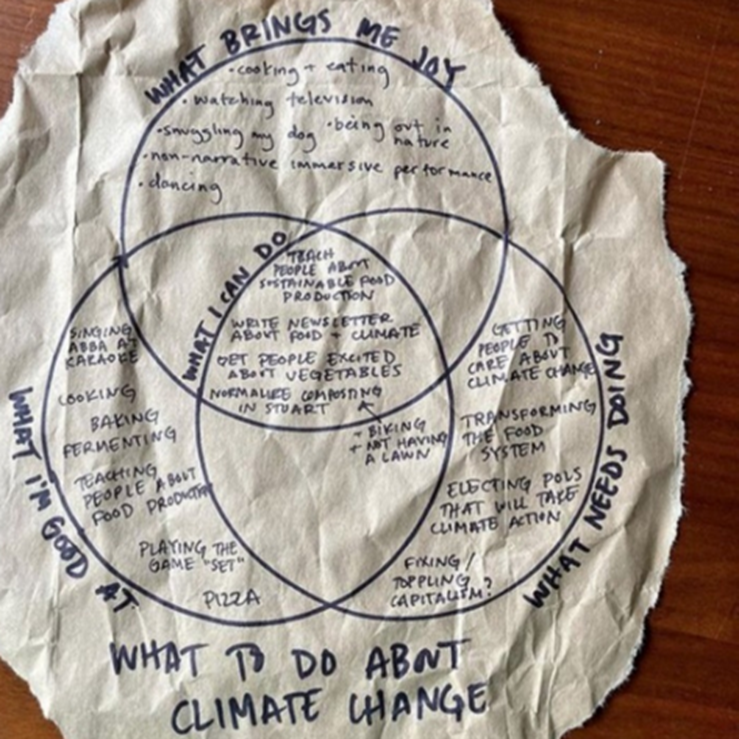 WHAT BRINGS ME JOY
• cooking + eating
• watching television
• snuggling my dog
• being out in
nature
• non-narrative immersive performance
• dancing
WHAT I CAN DO
TEACH
PEOPLE ABOUT
SUSTAINABLE FOOD
PRODUCTION
WRITE NEWSLETTER
ABOUT FOOD + CLIMATE
GET PEOPLE EXCITED
ABOUT VEGETABLES
NORMALIZE COMPOSTING
IN STUART
+ BIKING
+ NOT HAVING
A LAWN
WHAT I'M GOOD AT
SINGING
ABBA AT
KARAOKE
COOKING
BAKING
FERMENTING
TEACHING
PEOPLE ABOUT
FOOD PRODUCTION
PLAYING THE
GAME "SET"
PIZZA
WHAT NEEDS DOING
GETTING
PEOPLE TO
CARE ABOUT
CLIMATE CHANGE
TRANSFORMING
THE FOOD
SYSTEM
ELECTING POLS
THAT WILL TAKE
CLIMATE ACTION
FIXING/
TOPPLING
CAPITALISM?
WHAT TO DO ABOUT
CLIMATE CHANGE